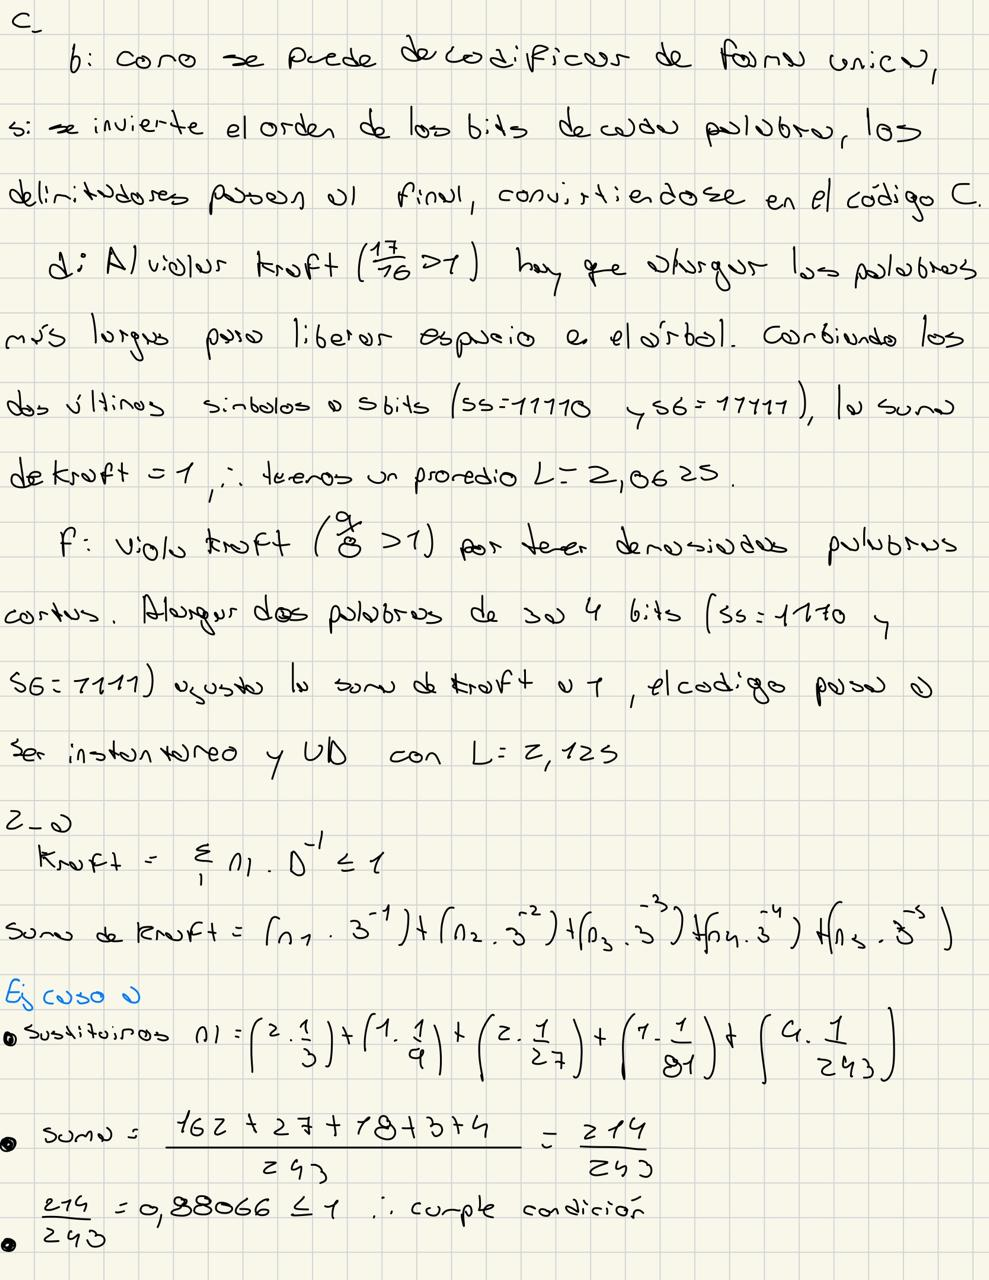 C_
b: como se puede decodificar de forma unica,
si se invierte el orden de los bits de cada palabra, los
delimitadores pasan al final, convirtiendose en el código C.
d: Al violar Kraft (17/16 >1) hay que alargar las palabras
más largas para liberar espacio en el árbol. Cambiando los
dos últimos simbolos a 5bits (s5=11110 y s6=11111), la suma
de Kraft = 1, ∴ tenemos un promedio L= 2,0625.
f: viola kraft (9/8 >1) por tener demasiadas palabras
cortas. Alargar dos palabras de 3 a 4 bits (s5=1110 y
s6=1111) ajusta la suma de Kraft a 1, el codigo pasa a
ser instantaneo y UD con L= 2,125
2_a
Kraft = Σ_l nl . D^-l ≤ 1
Suma de Kraft = (n1 . 3^-1)+(n2 . 3^-2)+(n3 . 3^-3)+(n4 . 3^-4)+(n5 . 3^-5)
Ej caso a
• Sustituimos nl = (2 . 1/3)+(1 . 1/9)+(2 . 1/27)+(1 . 1/81)+(4 . 1/243)
• suma = (162 + 27 + 18 + 3 + 4)/243 = 214/243
• 214/243 = 0,88066 ≤ 1 ∴ cumple condición